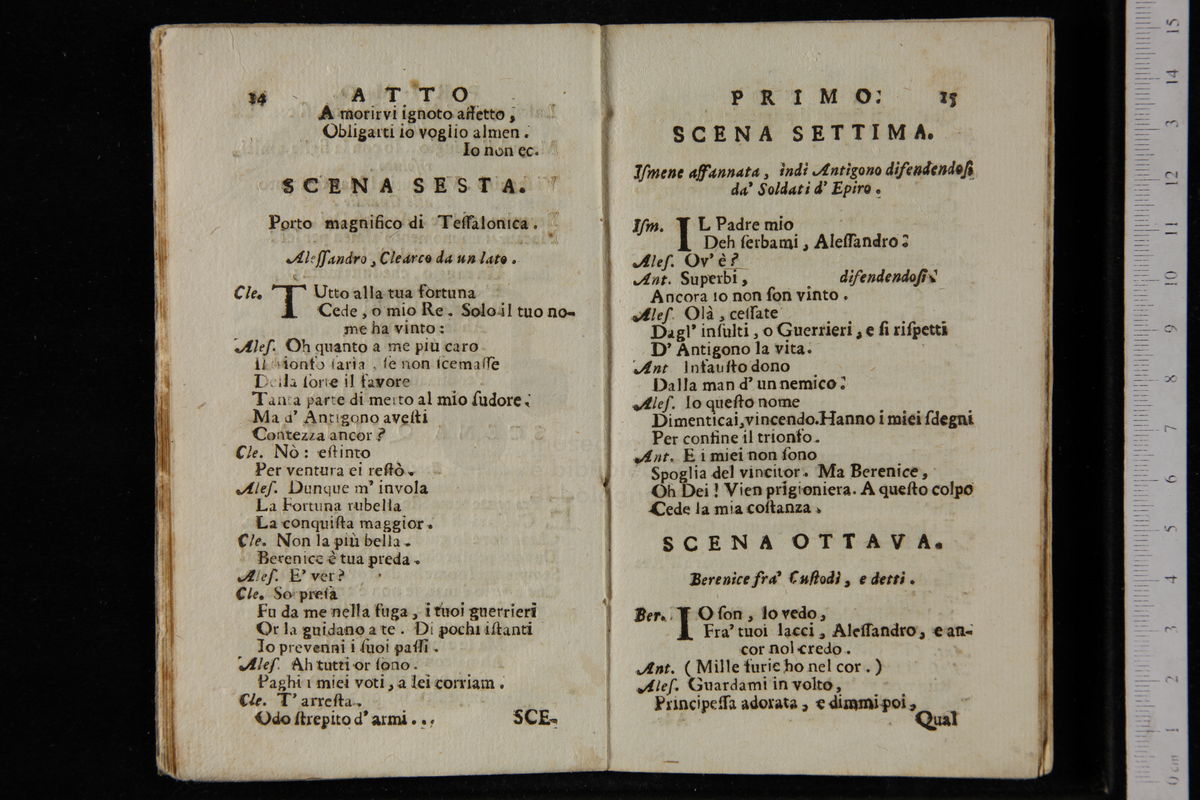 14 ATTO
A morirvi ignoto affetto,
Obligarti io voglio almen.
Io non ec.
SCENA SESTA.
Porto magnifico di Teſſalonica.
Aleſſandro, Clearco da un lato.
Cle. TUtto alla tua fortuna
Cede, o mio Re. Solo il tuo no-
me ha vinto:
Aleſ. Oh quanto a me più caro
Il trionfo ſaria, ſe non ſcemaſſe
Della ſorte il favore
Tanta parte di merto al mio ſudore.
Ma d' Antigono aveſti
Contezza ancor?
Cle. Nò: eſtinto
Per ventura ei reſtò.
Aleſ. Dunque m' invola
La Fortuna rubella
La conquiſta maggior.
Cle. Non la più bella.
Berenice è tua preda.
Aleſ. E' ver?
Cle. So preſa
Fu da me nella fuga, i tuoi guerrieri
Or la guidano a te. Di pochi iſtanti
Io prevenni i ſuoi paſſi.
Aleſ. Ah tutti or ſono.
Paghi i miei voti, a lei corriam.
Cle. T' arreſta.
Odo ſtrepito d' armi...
SCE-
PRIMO: 15
SCENA SETTIMA.
Iſmene affannata, indi Antigono difendendoſi
da' Soldati d' Epiro.
Iſm. IL Padre mio
Deh ſerbami, Aleſſandro:
Aleſ. Ov' è?
Ant. Superbi, difendendoſi:
Ancora io non ſon vinto.
Aleſ. Olà, ceſſate
Dagl' inſulti, o Guerrieri, e ſi riſpetti
D' Antigono la vita.
Ant Infauſto dono
Dalla man d' un nemico:
Aleſ. Io queſto nome
Dimenticai, vincendo. Hanno i miei ſdegni
Per confine il trionfo.
Ant. E i miei non ſono
Spoglia del vincitor. Ma Berenice,
Oh Dei! Vien prigioniera. A queſto colpo
Cede la mia coſtanza.
SCENA OTTAVA.
Berenice fra' Cuſtodi, e detti.
Ber. IO ſon, lo vedo,
Fra' tuoi lacci, Aleſſandro, e an-
cor nol credo.
Ant. (Mille furie ho nel cor.)
Aleſ. Guardami in volto,
Principeſſa adorata, e dimmi poi,
Qual
15
14
13
12
11
10
9
8
7
6
5
4
3
2
1
0 cm